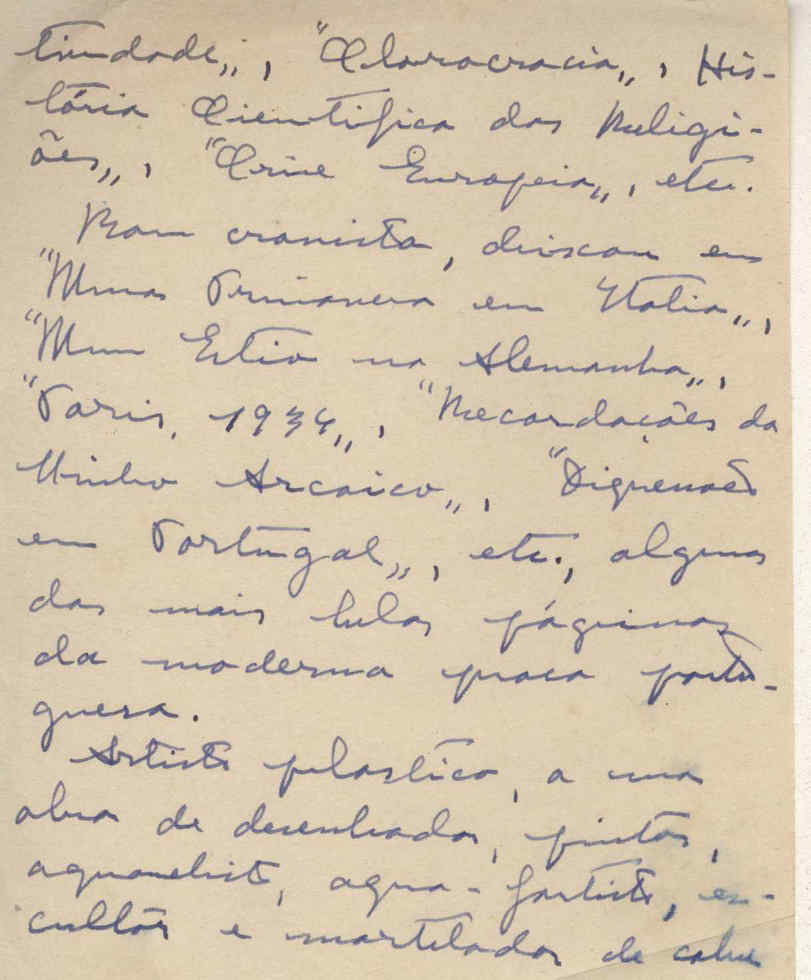 tindade„, "Clarocracia„, His-
tória Cientifica das Religi-
ões„, "Crise Europeia„, etc.
Bom cronista, deixou em
"Numa Primavera em Italia„,
"Num Estio na Alemanha„,
"Paris, 1934„, "Recordações do
Minho Arcaico„, "Digressões
em Portugal„, etc., algumas
das mais belas páginas
da moderna prosa portu-
guesa.
Artista plastico, a sua
obra de desenhador, pintor,
aguarelista, agua-fortista, es-
cultor e martelador de cobre